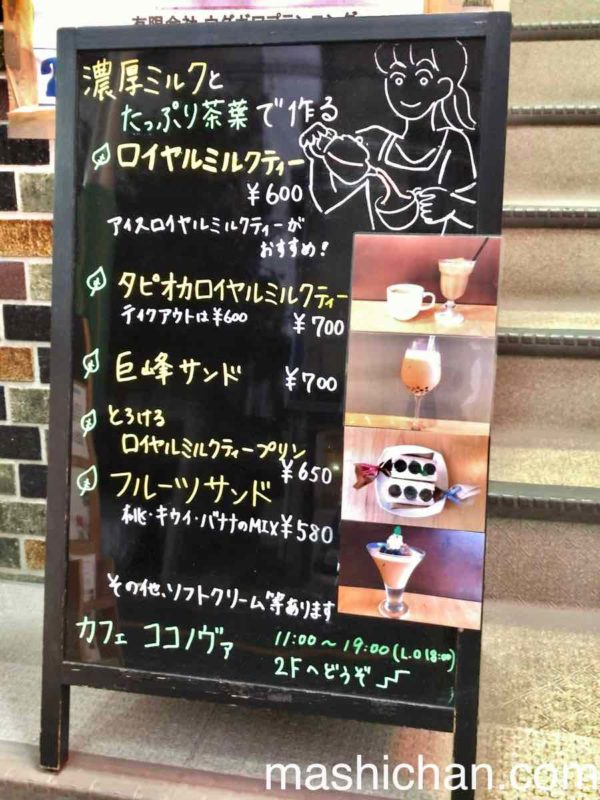 濃厚ミルクと
たっぷり茶葉で作る
ロイヤルミルクティー
¥600
アイスロイヤルミルクティーが
おすすめ!
タピオカロイヤルミルクティー
テイクアウトは¥600 ¥700
巨峰サンド ¥700
とろける
ロイヤルミルクティープリン
¥650
フルーツサンド
キウイ・バナナのMIX ¥580
その他、ソフトクリーム等あります
カフェ ココノヴァ
11:00～19:00(L.O 18:00)
2Fへどうぞ
mashichan.com